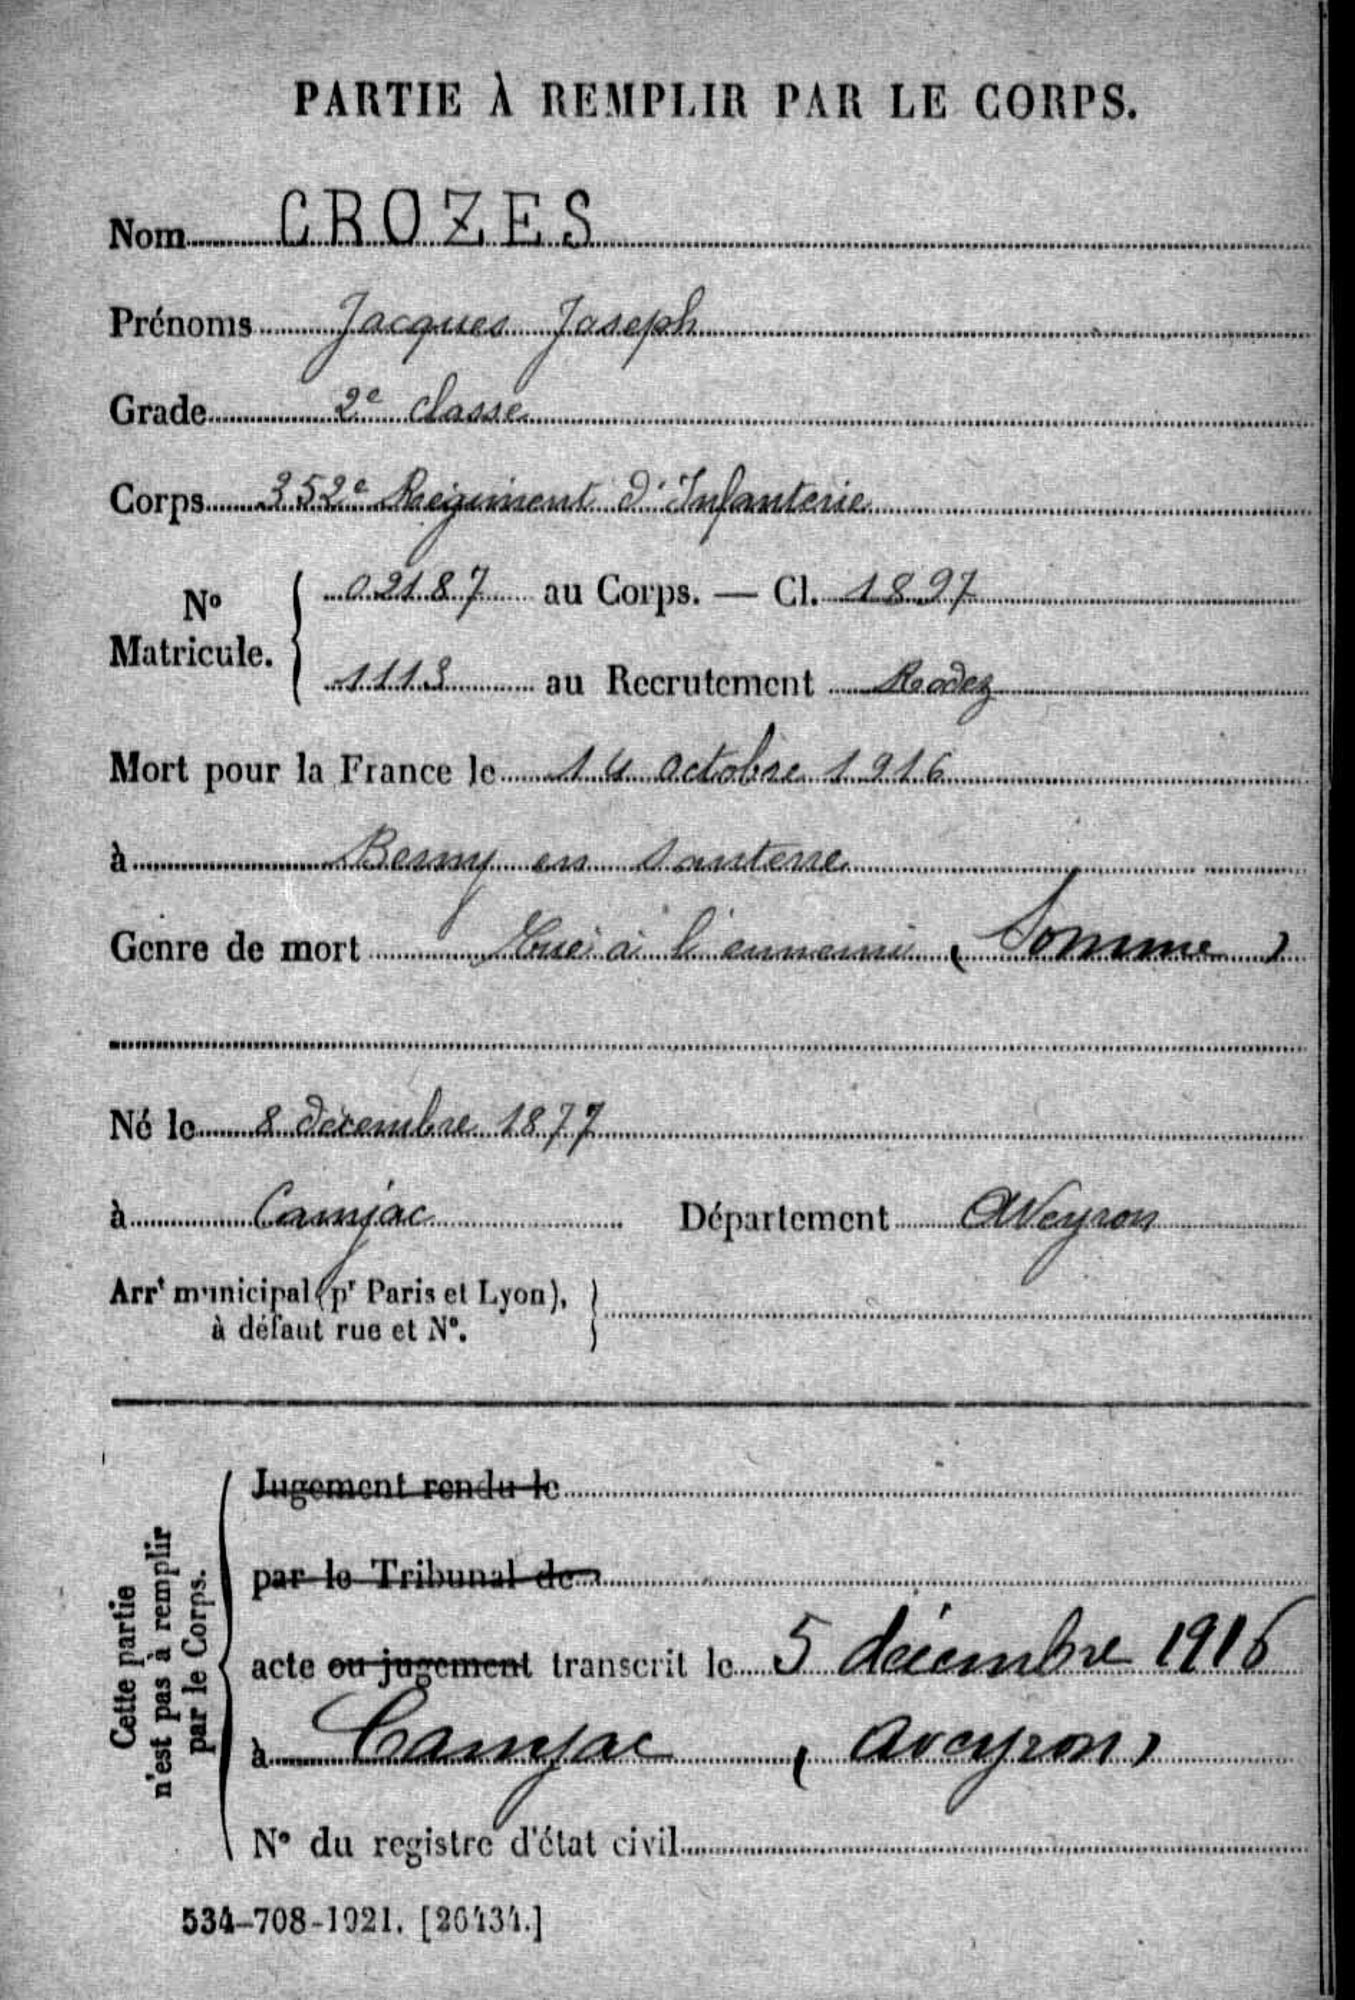 PARTIE À REMPLIR PAR LE CORPS.
Nom CROZES
Prénoms Jacques Joseph
Grade 2e classe
Corps 352e Régiment d'Infanterie
No Matricule. { 02187 au Corps. — Cl. 1897
1113 au Recrutement Rodez
Mort pour la France le 14 octobre 1916
à Berny en Santerre
Genre de mort Tué à l'ennemi (Somme)
Né le 8 décembre 1877
à Camjac Département Aveyron
Arrt municipal (pr Paris et Lyon),
à défaut rue et No.
Cette partie
n'est pas à remplir
par le Corps.
Jugement rendu le
par le Tribunal de
acte ou jugement transcrit le 5 décembre 1916
à Camjac (Aveyron)
No du registre d'état civil
534-708-1921. [26434.]